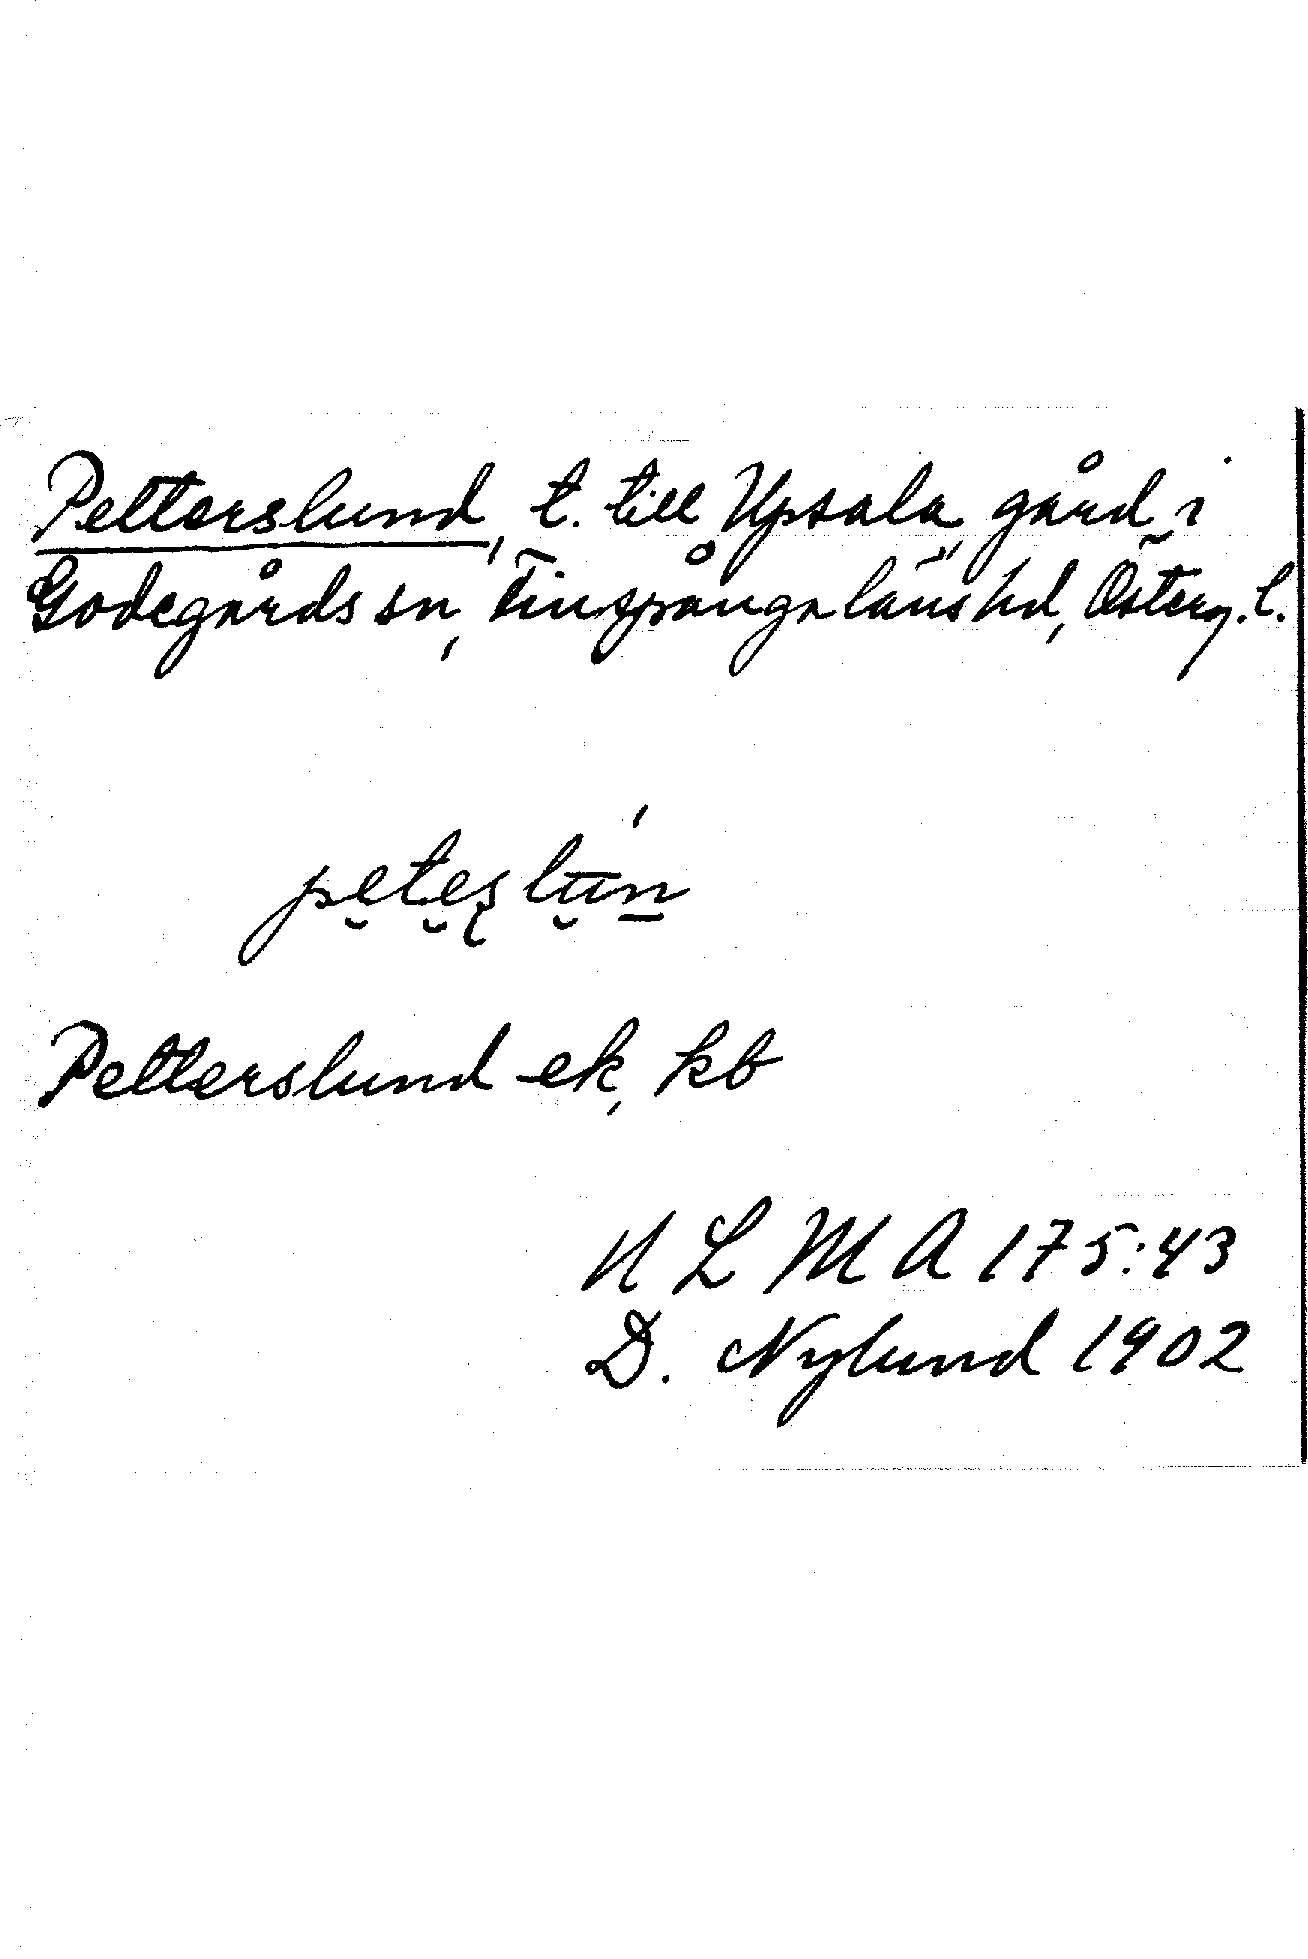 Petterslund, t. till Upsala, gård i
Godegårds sn, Finspånga läns hd, Österg. l.
petes lun
Petterslund ek, kb
N L M A 175:43
D. Nylund 1902